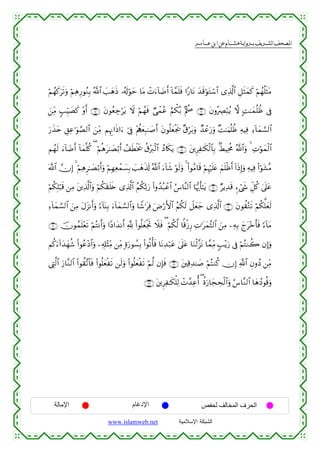 المصحف الشريف برواية هشام عن ابن عامر
مَثَلُهُمْ كَمَثَلِ ٱلَّذِي ٱسْتَوْقَدَ نَارًا فَلَمَّآ أَضَآءَتْ مَا حَوْلَهُۥ ذَهَبَ ٱللَّهُ بِنُورِهِمْ وَتَرَكَهُمْ
فِي ظُلُمَٰتٍ لَّا يُبْصِرُونَ صُمٌّۢ بُكْمٌ عُمْيٌ فَهُمْ لَا يَرْجِعُونَ أَوْ كَصَيِّبٍ مِّنَ
ٱلسَّمَآءِ فِيهِ ظُلُمَٰتٌ وَرَعْدٌ وَبَرْقٌ يَجْعَلُونَ أَصَٰبِعَهُمْ فِيٓ ءَاذَانِهِم مِّنَ ٱلصَّوَٰعِقِ حَذَرَ
ٱلْمَوْتِ وَٱللَّهُ مُحِيطٌۢ بِٱلْكَٰفِرِينَ يَكَادُ ٱلْبَرْقُ يَخْطَفُ أَبْصَٰرَهُمْ كُلَّمَآ أَضَآءَ لَهُم
مَّشَوْا۟ فِيهِ وَإِذَآ أَظْلَمَ عَلَيْهِمْ قَامُوا۟ وَلَوْ شَآءَ ٱللَّهُ لَذَهَبَ بِسَمْعِهِمْ وَأَبْصَٰرِهِمْ إِنَّ ٱللَّهَ
عَلَىٰ كُلِّ شَيْءٍ قَدِيرٌ يَٰٓأَيُّهَا ٱلنَّاسُ ٱعْبُدُوا۟ رَبَّكُمُ ٱلَّذِي خَلَقَكُمْ وَٱلَّذِينَ مِن قَبْلِكُمْ
لَعَلَّكُمْ تَتَّقُونَ ٱلَّذِي جَعَلَ لَكُمُ ٱلْأَرْضَ فِرَٰشًا وَٱلسَّمَآءَ بِنَآءً وَأَنزَلَ مِنَ ٱلسَّمَآءِ
مَآءً فَأَخْرَجَ بِهِۦ مِنَ ٱلثَّمَرَٰتِ رِزْقًا لَّكُمْ فَلَا تَجْعَلُوا۟ لِلَّهِ أَندَادًا وَأَنتُمْ تَعْلَمُونَ
وَإِن كُنتُمْ فِي رَيْبٍ مِّمَّا نَزَّلْنَا عَلَىٰ عَبْدِنَا فَأْتُوا۟ بِسُورَةٍ مِّن مِّثْلِهِۦ وَٱدْعُوا۟ شُهَدَآءَكُم
مِّن دُونِ ٱللَّهِ إِن كُنتُمْ صَٰدِقِينَ فَإِن لَّمْ تَفْعَلُوا۟ وَلَن تَفْعَلُوا۟ فَٱتَّقُوا۟ ٱلنَّارَ ٱلَّتِي
وَقُودُهَا ٱلنَّاسُ وَٱلْحِجَارَةُ أُعِدَّتْ لِلْكَٰفِرِينَ
الحرف المخالف لحفص الإدغام الإمالة
الشبكة الإسلامية www.islamweb.net